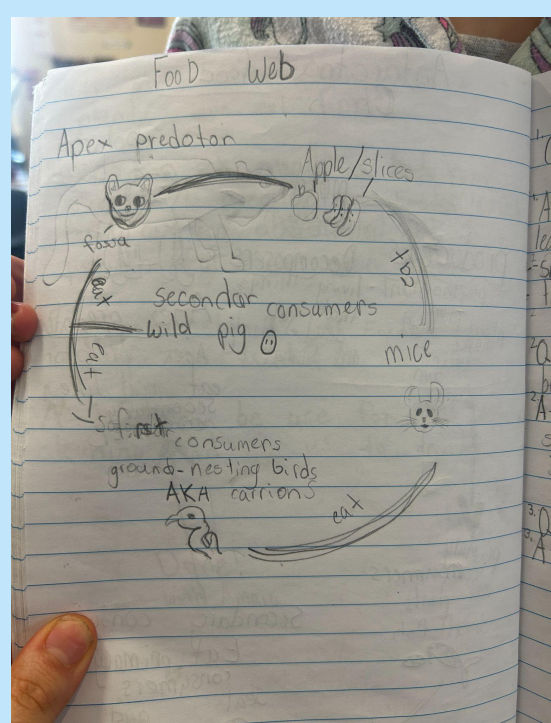 Food Web
Apex predoton
Apple/slices
fossa
eat
eat
secondar consumers
wild pig
eat
mice
first consumers
ground-nesting birds
AKA carrions
eat